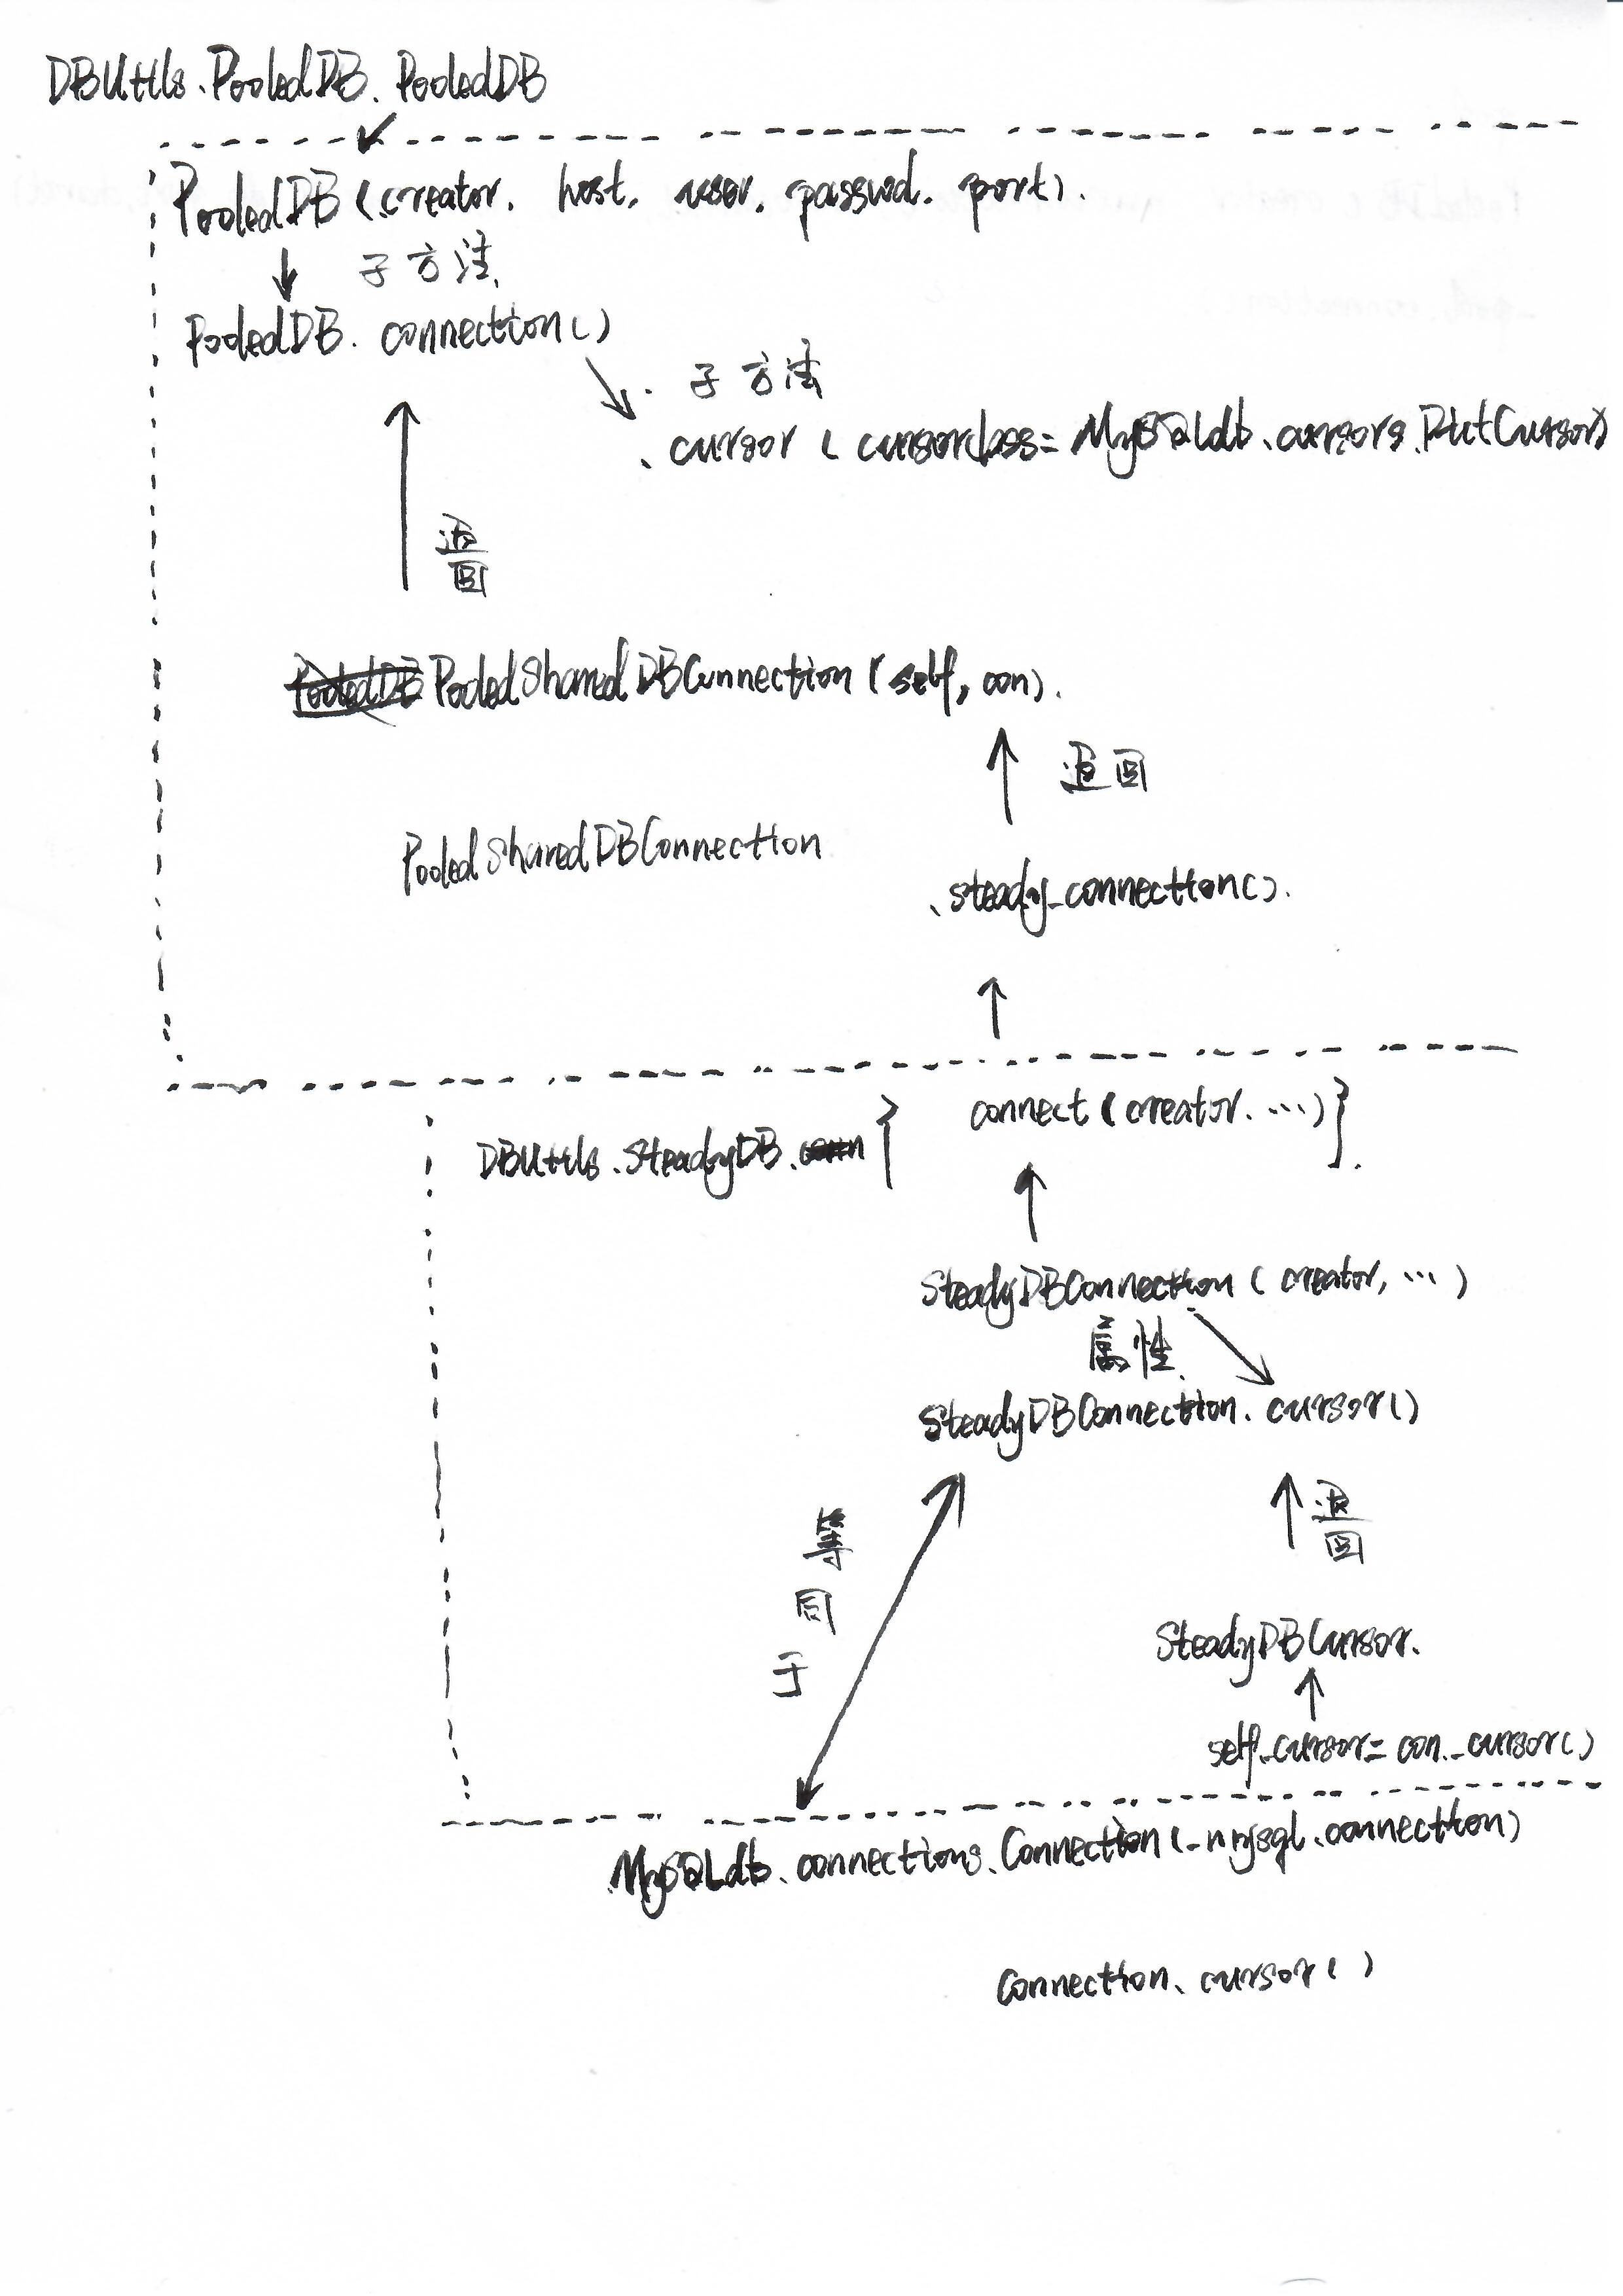 DBUtils.PooledDB.PooledDB
PooledDB (creator, host, user, passwd, port).
子方法
PooledDB. connection()
子方法
.cursor ( cursorclass= MySQLdb.cursors.DictCursor)
返回
PooledDB PooledSharedDBConnection (self, con).
返回
PooledSharedDBConnection
.steady_connection().
connect (creator. ...) }.
DBUtils.SteadyDB.conn {
SteadyDBConnection ( creator, ... )
属性
SteadyDBConnection. cursor()
等同于
返回
SteadyDBCursor.
self._cursor= con._cursor()
MySQLdb.connections.Connection(_mysql.connection)
Connection. cursor( )